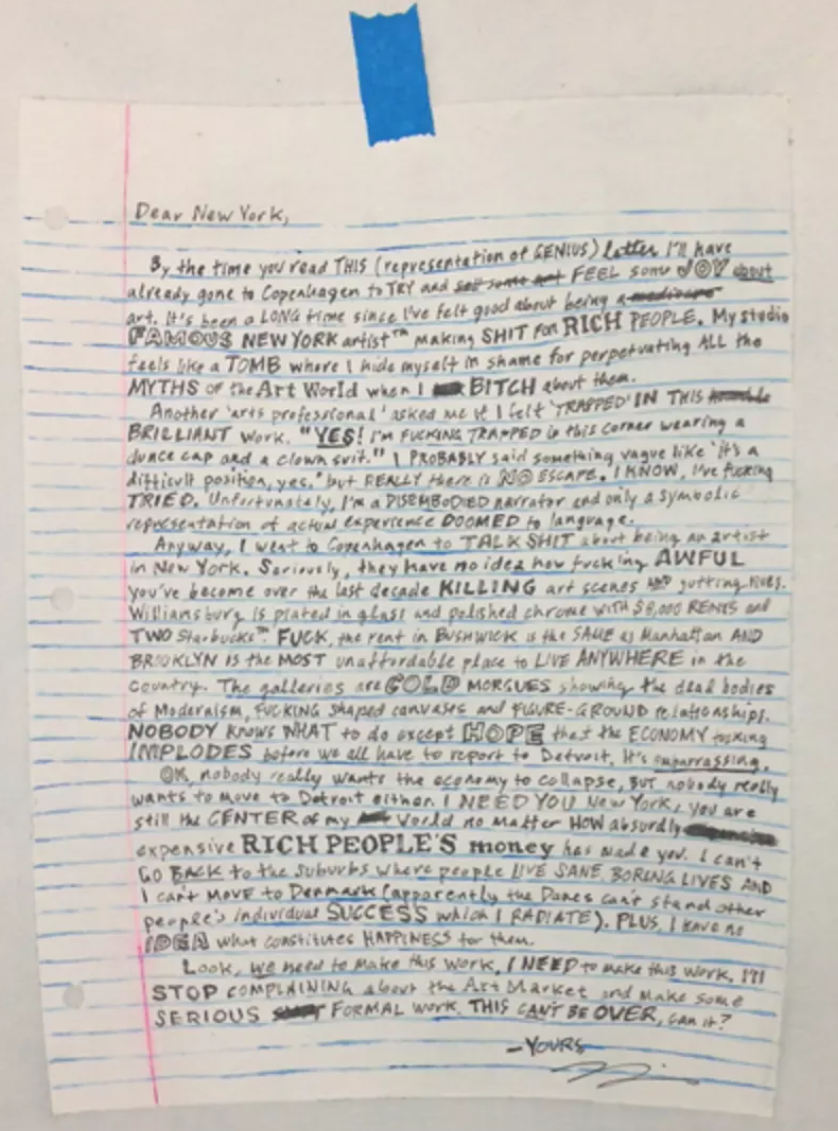 Dear New York,
By the time you read THIS (representation of GENIUS) letter I'll have
already gone to Copenhagen to TRY and sell some art FEEL some JOY about
art. It's been a LONG time since I've felt good about being a mediocre
FAMOUS NEW YORK artist™ making SHIT for RICH PEOPLE. My studio
feels like a TOMB where I hide myself in shame for perpetuating ALL the
MYTHS of the Art World when I BITCH about them.
Another 'arts professional' asked me if I felt 'TRAPPED' IN THIS
BRILLIANT work. "YES! I'M FUCKING TRAPPED in this corner wearing a
dunce cap and a clown suit." I PROBABLY said something vague like "it's a
difficult position, yes," but REALLY there is NO ESCAPE. I KNOW, I've fucking
TRIED. Unfortunately, I'm a DISEMBODIED narrator and only a symbolic
representation of actual experience DOOMED to language.
Anyway, I went to Copenhagen to TALK SHIT about being an artist
in New York. Seriously, they have no idea how fucking AWFUL
you've become over the last decade KILLING art scenes AND gutting lives.
Williamsburg is plated in glass and polished chrome with $8,000 RENTS and
TWO Starbucks™ FUCK, the rent in BUSHWICK is the SAME as Manhattan AND
BROOKLYN is the MOST unaffordable place to LIVE ANYWHERE in the
country. The galleries are COLD MORGUES showing the dead bodies
of Modernism, FUCKING shaped canvases and FIGURE-GROUND relationships.
NOBODY KNOWS WHAT to do except HOPE that the ECONOMY fucking
IMPLODES before we all have to report to Detroit. It's embarrassing.
OK, nobody really wants the economy to collapse, BUT nobody really
wants to move to Detroit either. I NEED YOU New York, you are
still the CENTER of my World no matter HOW absurdly
expensive RICH PEOPLE'S money has made you. I can't
GO BACK to the suburbs where people LIVE SANE, BORING LIVES AND
I can't MOVE to Denmark (apparently the Danes can't stand other
people's individual SUCCESS which I RADIATE). PLUS, I have no
IDEA what constitutes HAPPINESS for them.
Look, we need to make this work. I NEED to make this work. I'll
STOP COMPLAINING about the Art Market and make some
SERIOUS FORMAL work. THIS CAN'T BE OVER, can it?
—YOURS